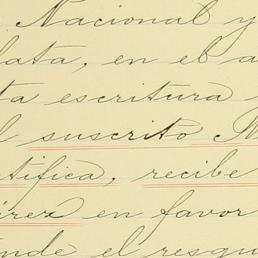 Nacional y
lata, en el a
ta escritura
l suscrito M
tifica, recibe
érez en favor
nde el resgu